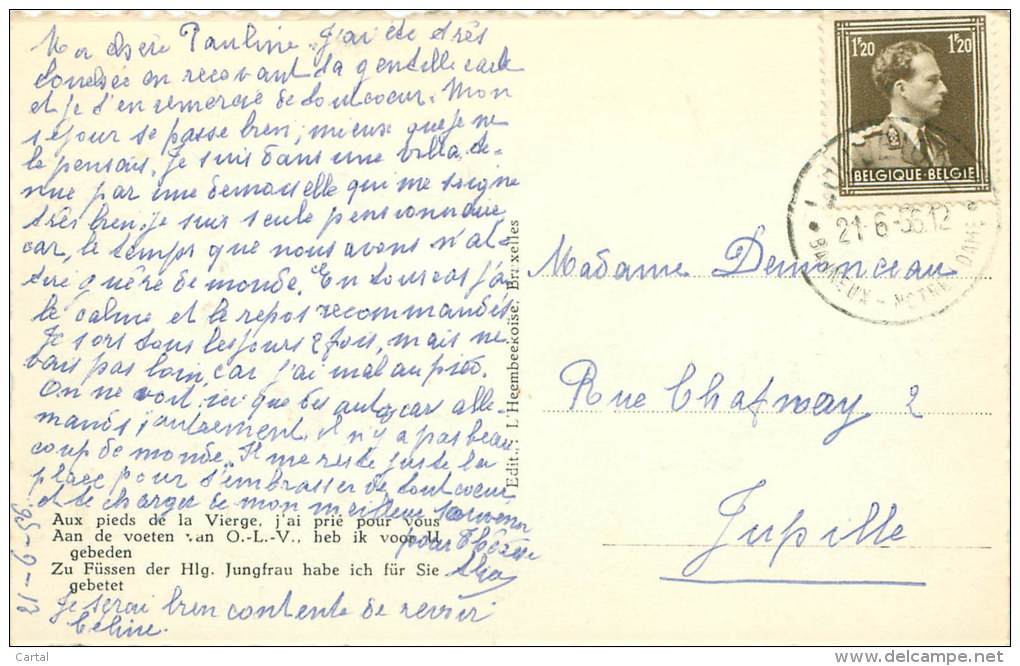 Ma chère Pauline. J'ai été très
touchée en recevant ta gentille carte
et je t'en remercie de tout coeur. Mon
séjour se passe bien, mieux que je ne
le pensais. Je suis dans une villa, te-
nue par une demoiselle qui me soigne
très bien. Je suis seule pensionnaire
car, le temps que nous avons n'at-
tire guère de monde. En tout cas j'ai
le calme et le repos recommandés.
Je sors tous les jours 2 fois, mais ne
vais pas loin, car j'ai mal au pied.
On ne voit ici que des autocar alle-
mands, autrement, il n'y a pas beau
coup de monde. Il me reste juste la
place pour t'embrasser de tout coeur
et te charger de mon meilleur souvenir
pour Thérèse
Je serai bien contente de revoir
Céline.
21-6-56.
Aux pieds de la Vierge, j'ai prié pour vous
Aan de voeten van O.-L.-V., heb ik voor U
gebeden
Zu Füssen der Hlg. Jungfrau habe ich für Sie
gebetet
Edit.: L'Heembeekoise, Bruxelles
1F20 1F20
BELGIQUE-BELGIE
21-6-56.12
BANNEUX - NOTRE DAME
Madame Demonceau
Rue Chafnay 2
Jupille
Cartal
www.delcampe.net